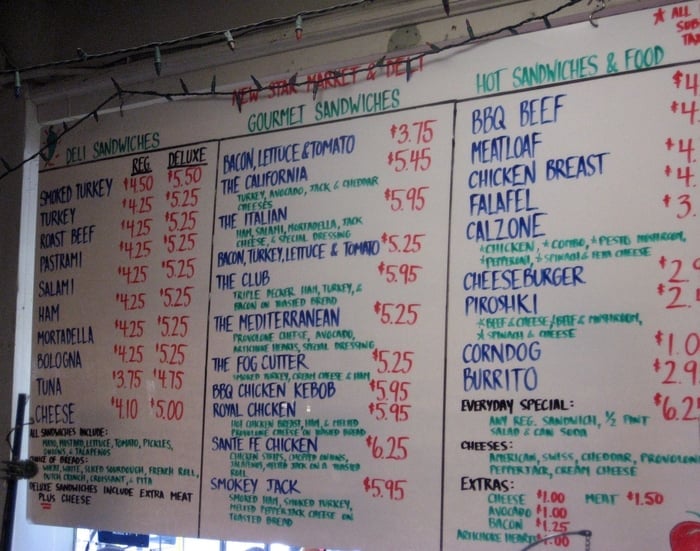 NEW STAR MARKET & DELI
DELI SANDWICHES
REG. DELUXE
SMOKED TURKEY $4.50 $5.50
TURKEY $4.25 $5.25
ROAST BEEF $4.25 $5.25
PASTRAMI $4.25 $5.25
SALAMI $4.25 $5.25
HAM $4.25 $5.25
MORTADELLA $4.25 $5.25
BOLOGNA $4.25 $5.25
TUNA $3.75 $4.75
CHEESE $4.10 $5.00
ALL SANDWICHES INCLUDE:
MAYO, MUSTARD, LETTUCE, TOMATO, PICKLES,
ONIONS & JALAPENOS
CHOICE OF BREADS:
WHEAT, WHITE, SLICED SOURDOUGH, FRENCH ROLL,
DUTCH CRUNCH, CROISSANT, & PITA
DELUXE SANDWICHES INCLUDE EXTRA MEAT
PLUS CHEESE
GOURMET SANDWICHES
BACON, LETTUCE & TOMATO $3.75
THE CALIFORNIA $5.45
TURKEY, AVOCADO, JACK & CHEDDAR
CHEESES
THE ITALIAN $5.95
HAM, SALAMI, MORTADELLA, JACK
CHEESE, & SPECIAL DRESSING
BACON, TURKEY, LETTUCE & TOMATO $5.25
THE CLUB $5.95
TRIPLE DECKER HAM, TURKEY, &
BACON ON TOASTED BREAD
THE MEDITERRANEAN $5.25
PROVOLONE CHEESE, AVOCADO,
ARTICHOKE HEARTS, SPECIAL DRESSING
THE FOG CUTTER $5.25
SMOKED TURKEY, CREAM CHEESE & HAM
BBQ CHICKEN KEBOB $5.95
ROYAL CHICKEN $5.95
HOT CHICKEN BREAST, HAM, & MELTED
PROVOLONE CHEESE ON TOASTED BREAD
SANTE FE CHICKEN $6.25
CHICKEN STRIPS, CHOPPED ONIONS,
JALAPENOS, MELTED JACK ON A TOASTED
ROLL
SMOKEY JACK $5.95
SMOKED HAM, SMOKED TURKEY,
MELTED PEPPERJACK CHEESE ON
TOASTED BREAD
* ALL
SUB
TAX
HOT SANDWICHES & FOOD
BBQ BEEF $4
MEATLOAF $4.
CHICKEN BREAST $4
FALAFEL $4.
CALZONE $3
*CHICKEN, *COMBO, *PESTO MUSHROOM,
*PEPPERONI, *SPINACH & FETA CHEESE
CHEESEBURGER $2.9
PIROSHKI $2.
*BEEF & CHEESE/BEEF & MUSHROOM,
*SPINACH & CHEESE
CORNDOG $1.0
BURRITO $2.9
EVERYDAY SPECIAL: $6.2
ANY REG. SANDWICH, 1/2 PINT
SALAD & CAN SODA
CHEESES:
AMERICAN, SWISS, CHEDDAR, PROVOLON
PEPPERJACK, CREAM CHEESE
EXTRAS:
CHEESE $1.00 MEAT $1.50
AVOCADO $1.00
BACON $1.25
ARTICHOKE HEARTS $1.00